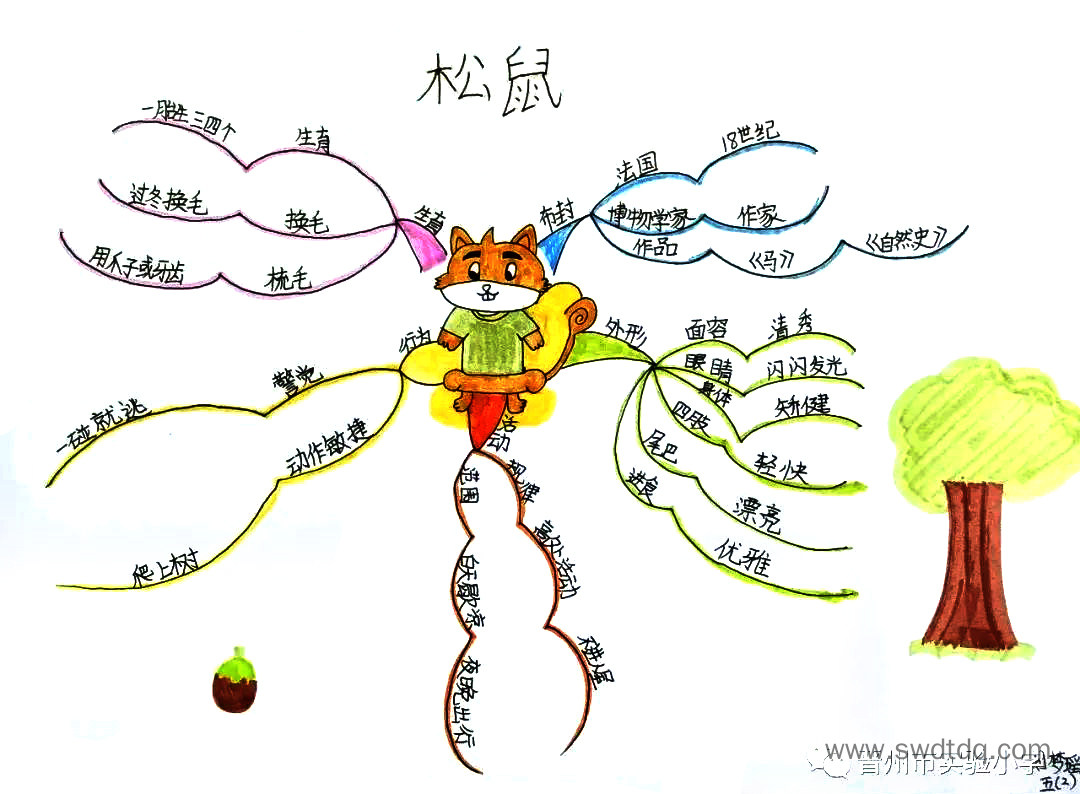 松鼠
一胎生三四个
生育
过冬换毛
换毛
用爪子或牙齿
梳毛
生育
布封
法国
18世纪
博物学家
作家
作品
《马》
《自然史》
外形
面容
清秀
眼睛
闪闪发光
身体
矫健
四肢
轻快
尾巴
漂亮
进食
优雅
行为
警觉
一碰就逃
动作敏捷
爬上树
活动
范围
白天歇凉
夜晚出行
规律
高处活动
www.swdtdq.com
晋州市实验小学
梦瑶
五(2)